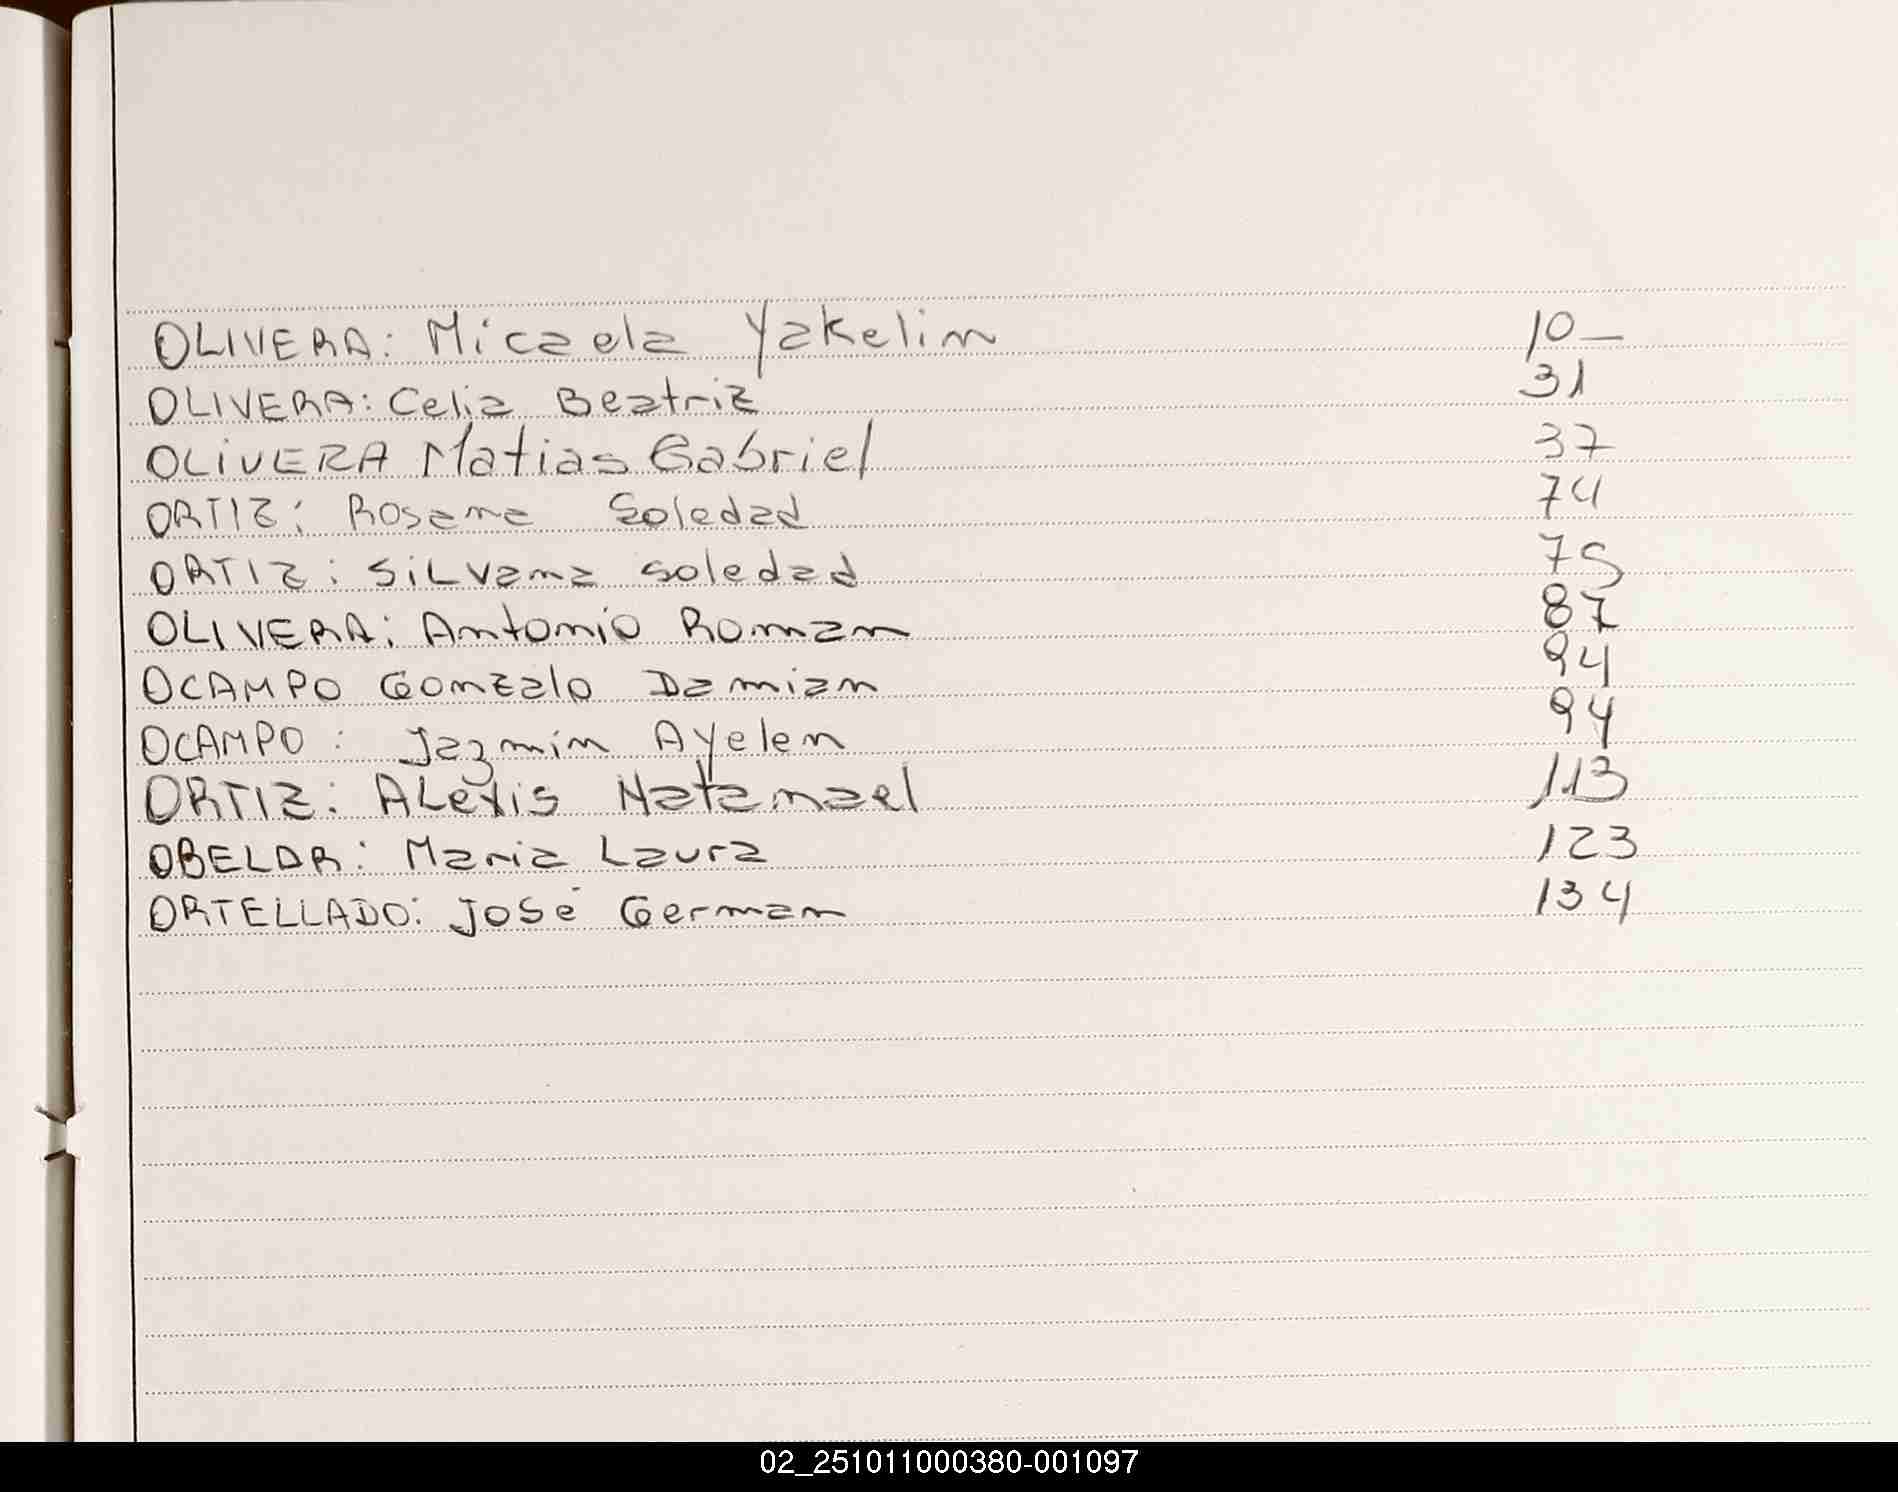 OLIVERA: Micaela Yakelin 10 —
OLIVERA: Celia Beatriz 31
OLiVERA Matias Gabriel 37
ORTIZ: Rosana Soledad 74
ORTIZ: SiLVana soledad 75
OLIVERA: Antonio Roman 87
OCAMPO Gonzalo Damian 94
OCAMPO: Jazmín Ayelen 94
ORTIZ: ALexis Natanael 113
OBELAR: Maria Laura 123
ORTELLADO: José German 134
02_251011000380-001097